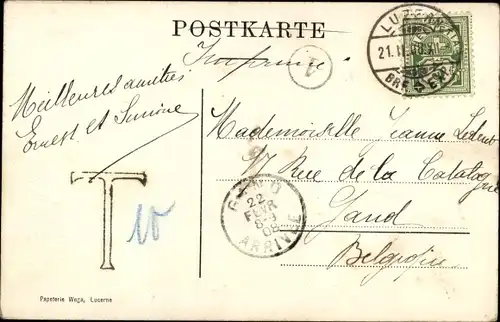 POSTKARTE
Imprimé
1
LUZERN
21.II.08.XII
BRF.
Meilleures amitiés
Ernest et Simone
Mademoiselle Jeanne
Rue de la Catalogne
Gand
Belgique
T
10
GAND
22
FEVR
8-9
08
ARRIVEE
Papeterie Wega, Lucerne